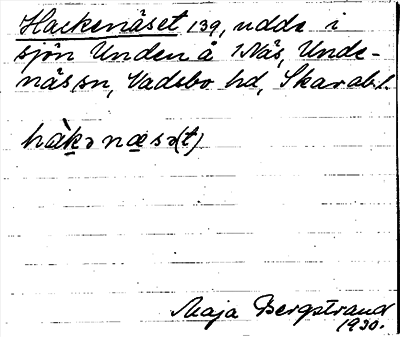 Hackenäset 139, udde i
sjön Unden å 1 Näs, Unde-
näs sn, Vadsbo hd, Skarab. l.
hàkə næsə(t)
Maja Bergstrand
1930.